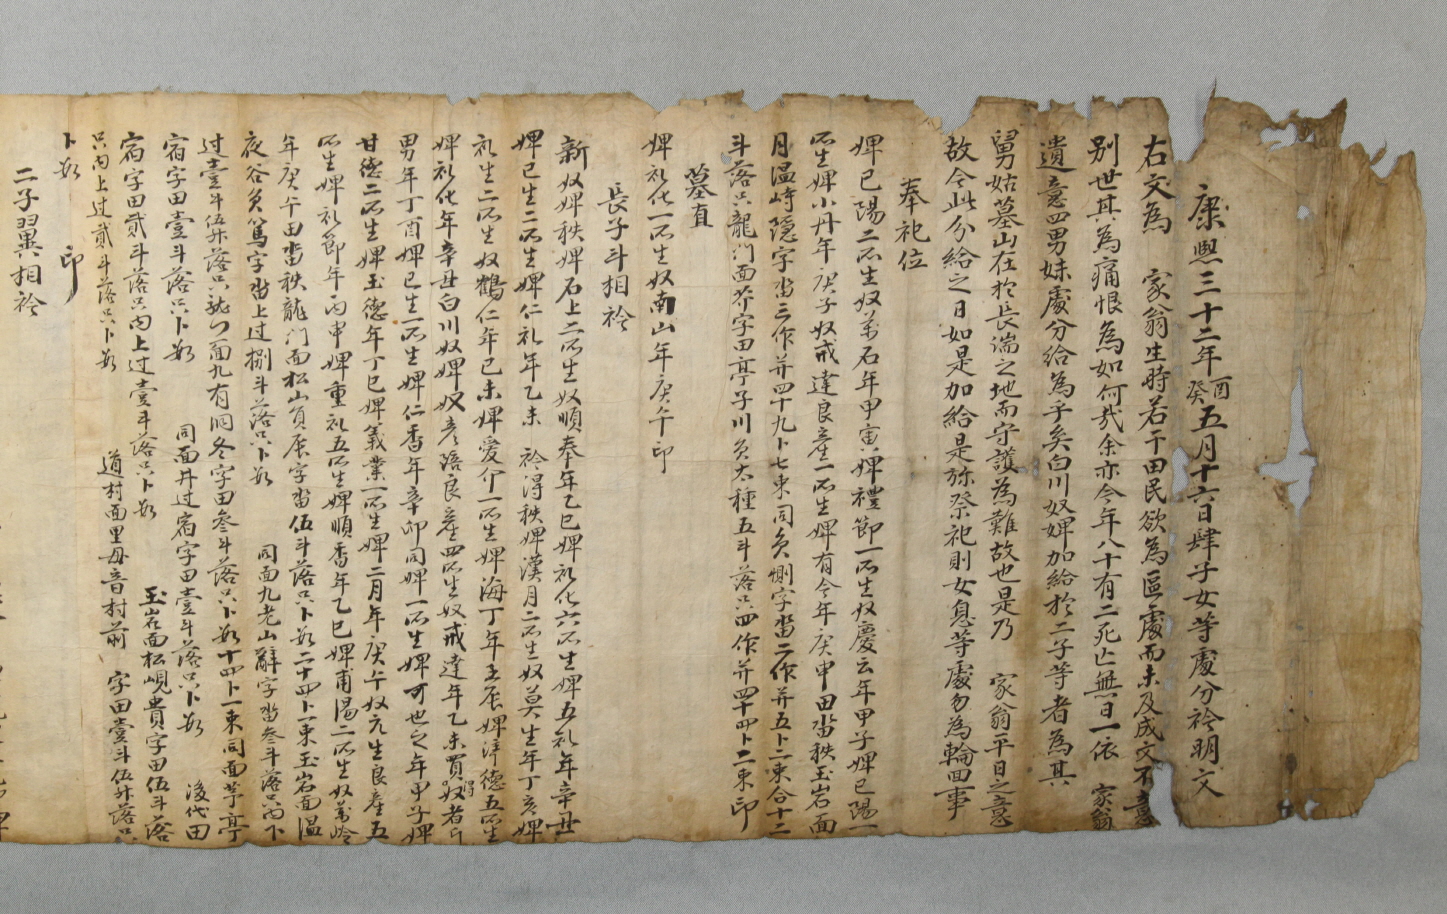 康熙三十二年癸酉五月十六日肆子女等處分衿明文
右文爲 家翁生時若干田民欲爲區處而未及成文不意
別世其爲痛恨爲如何哉余亦今年八十有二死亡無日一依 家翁
遺意四男妹處分給爲乎矣白川奴婢加給於二子等者爲其
舅姑墓山在於長湍之地而守護爲難故也是乃 家翁平日之意
故今此分給之日如是加給是旀祭祀則女息等處勿爲輪回事
奉祀位
婢已陽二所生奴萬石年甲寅婢禮節一所生奴慶云年甲子婢已陽一
所生婢小丹年庚子奴戒達良産一所生婢有今年庚申田畓秩玉岩面
月溫峙隱字畓三作并四十九卜七束同員惻字畓二作并五卜二束合十二
斗落只龍門面芥字田亭子川員太種五斗落只四作并四十四卜二束印
墓直
婢礼化一所生奴南山年庚午印
長子斗相衿
新奴婢秩婢石上二所生奴順奉年乙巳婢礼化六所生婢五礼年辛丑
婢已生二所生婢仁礼年乙未 衿得秩婢漢月二所生奴莫生年丁亥婢
礼生二所生奴鶴仁年已未婢愛介一所生婢海丁年壬辰婢津德五所生
婢礼化年辛丑白川奴婢奴彦陪良産四所生奴戒達年乙未買得奴者斤
男年丁酉婢已生一所生婢仁香年辛卯同婢一所生婢可也之年甲子婢
甘德二所生婢玉德年丁巳婢義業一所生婢二月年庚午奴元生良産五
所生婢礼節年丙申婢重礼五所生婢順香年乙巳婢甫陽二所生奴萬岭
年庚午田畓秩龍門面松山員屈字畓伍斗落只卜數二十四卜一束玉岩面溫
夜谷員篤字畓上过捌斗落只卜數 同面九老山辭字畓叁斗落只內下
过壹斗伍升落只龍門面九有洞冬字田叁斗落只卜數十四卜一束同面芋亭
宿字田壹斗落只卜數 同面丹过宿字田壹斗落只卜數 後代田
宿字田貳斗落只內上过壹斗落只卜數 玉岩面松峴貴字田伍斗落
只內上过貳斗落只卜數 道村面里毋音村前 字田壹斗伍升落只
卜數 印
二子翼相衿